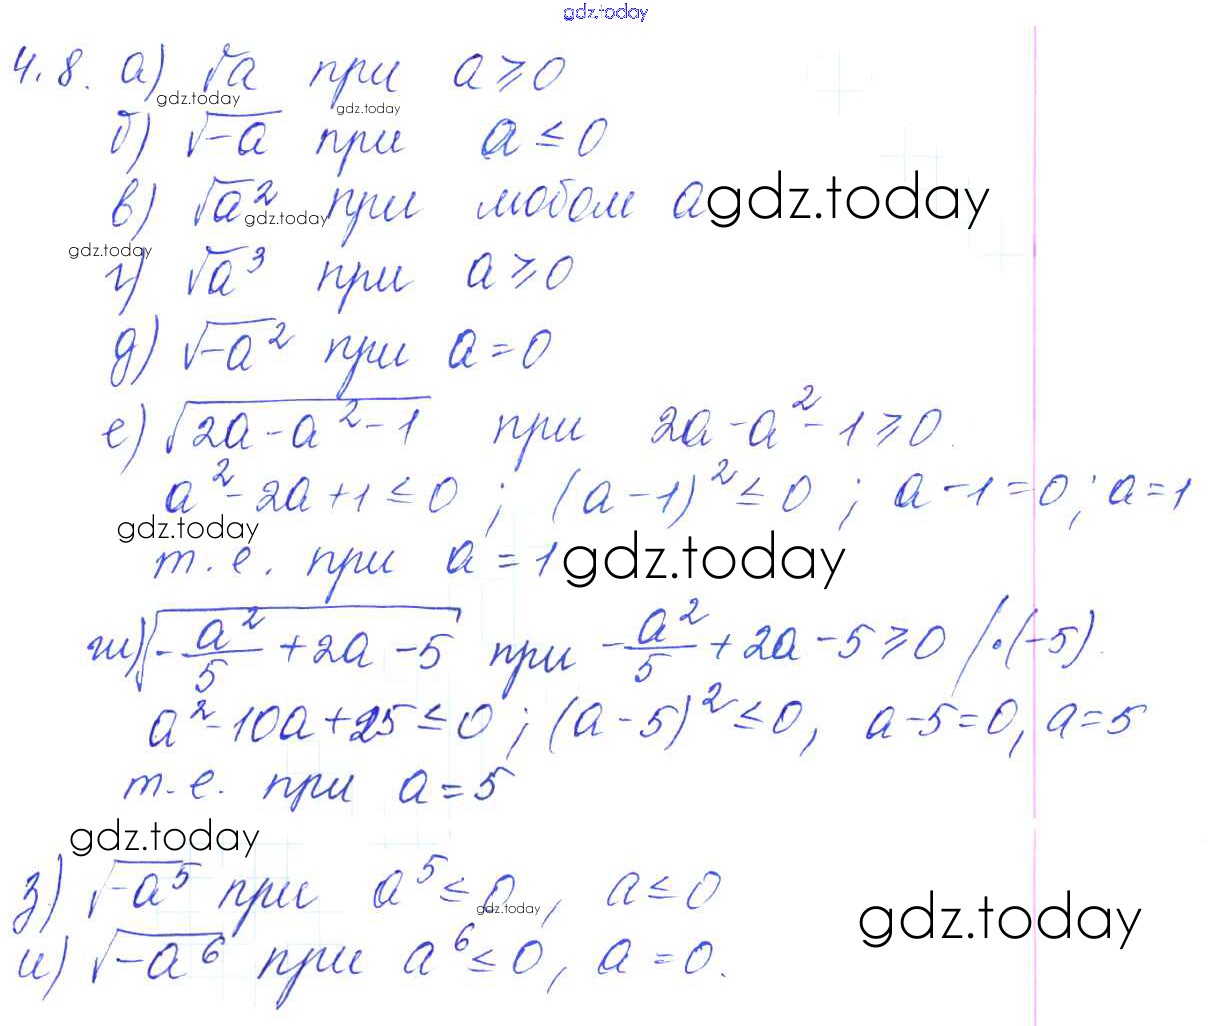 gdz.today
4.8. а) √a при a ≥ 0
gdz.today
gdz.today
б) √-a при a ≤ 0
в) √a² при любом a gdz.today
gdz.today
gdz.today
г) √a³ при a ≥ 0
д) √-a² при a = 0
е) √2a - a² - 1 при 2a - a² - 1 ≥ 0.
a² - 2a + 1 ≤ 0; (a - 1)² ≤ 0; a - 1 = 0; a = 1
gdz.today
т.е. при a = 1 gdz.today
ж) √-a²/5 + 2a - 5 при -a²/5 + 2a - 5 ≥ 0 / · (-5).
a² - 10a + 25 ≤ 0; (a - 5)² ≤ 0, a - 5 = 0, a = 5
т.е. при a = 5
gdz.today
з) √-a⁵ при a⁵ ≤ 0, a ≤ 0
gdz.today
gdz.today
и) √-a⁶ при a⁶ ≤ 0, a = 0.